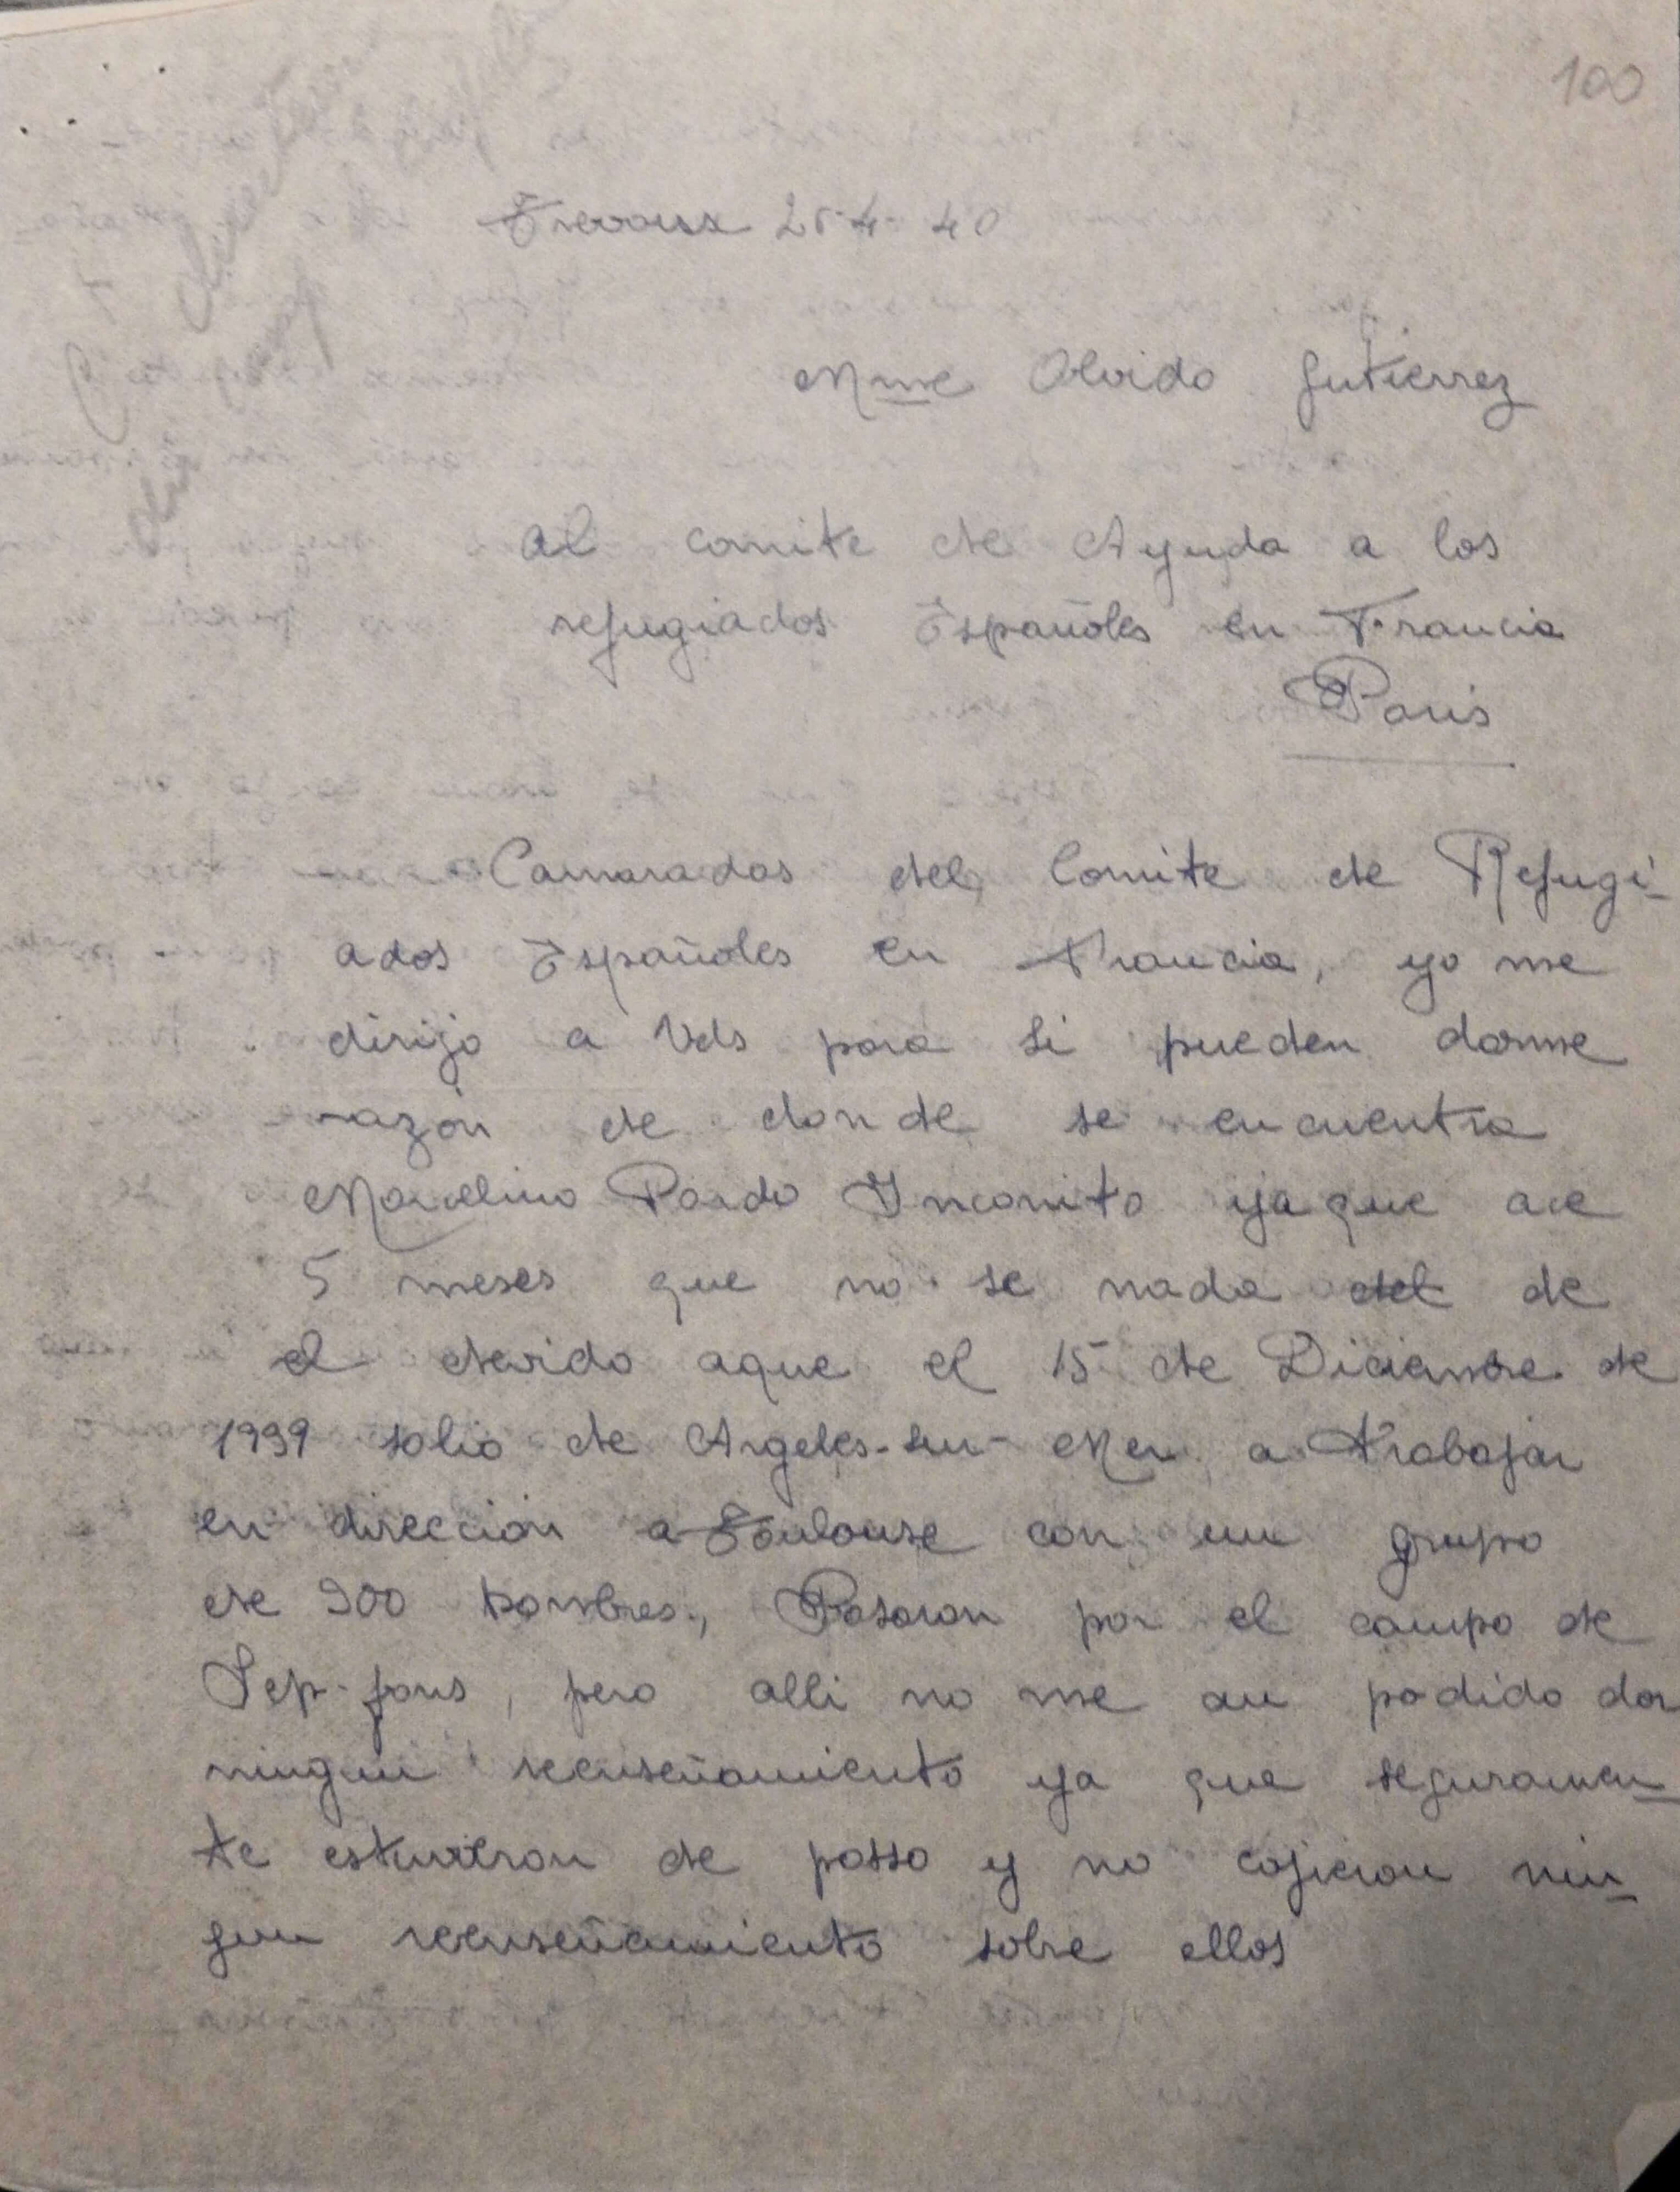 100
Trevoux 25-4-40
Mme Olvido Gutierrez
al comite de Ayuda a los
refugiados Españoles en Francia
Paris
Camaradas del Comite de Refugi-
ados Españoles en Francia, yo me
dirijo a Vds para si pueden darme
razon de donde se encuentra
Marcelino Pardo Inconito ya que ace
5 meses que no se nada del de
el devido aque el 15 de Diciembre de
1939 salio de Argeles-sur-Mer a trabajar
en direccion a Toulouse con un grupo
de 900 hombres, Pasaron por el campo de
Sep-fons, pero alli no me an podido dar
ningun reenseñamiento ya que seguramen-
te estuvieron de passo y no cojieron nin-
gun reenseñamiento sobre ellos